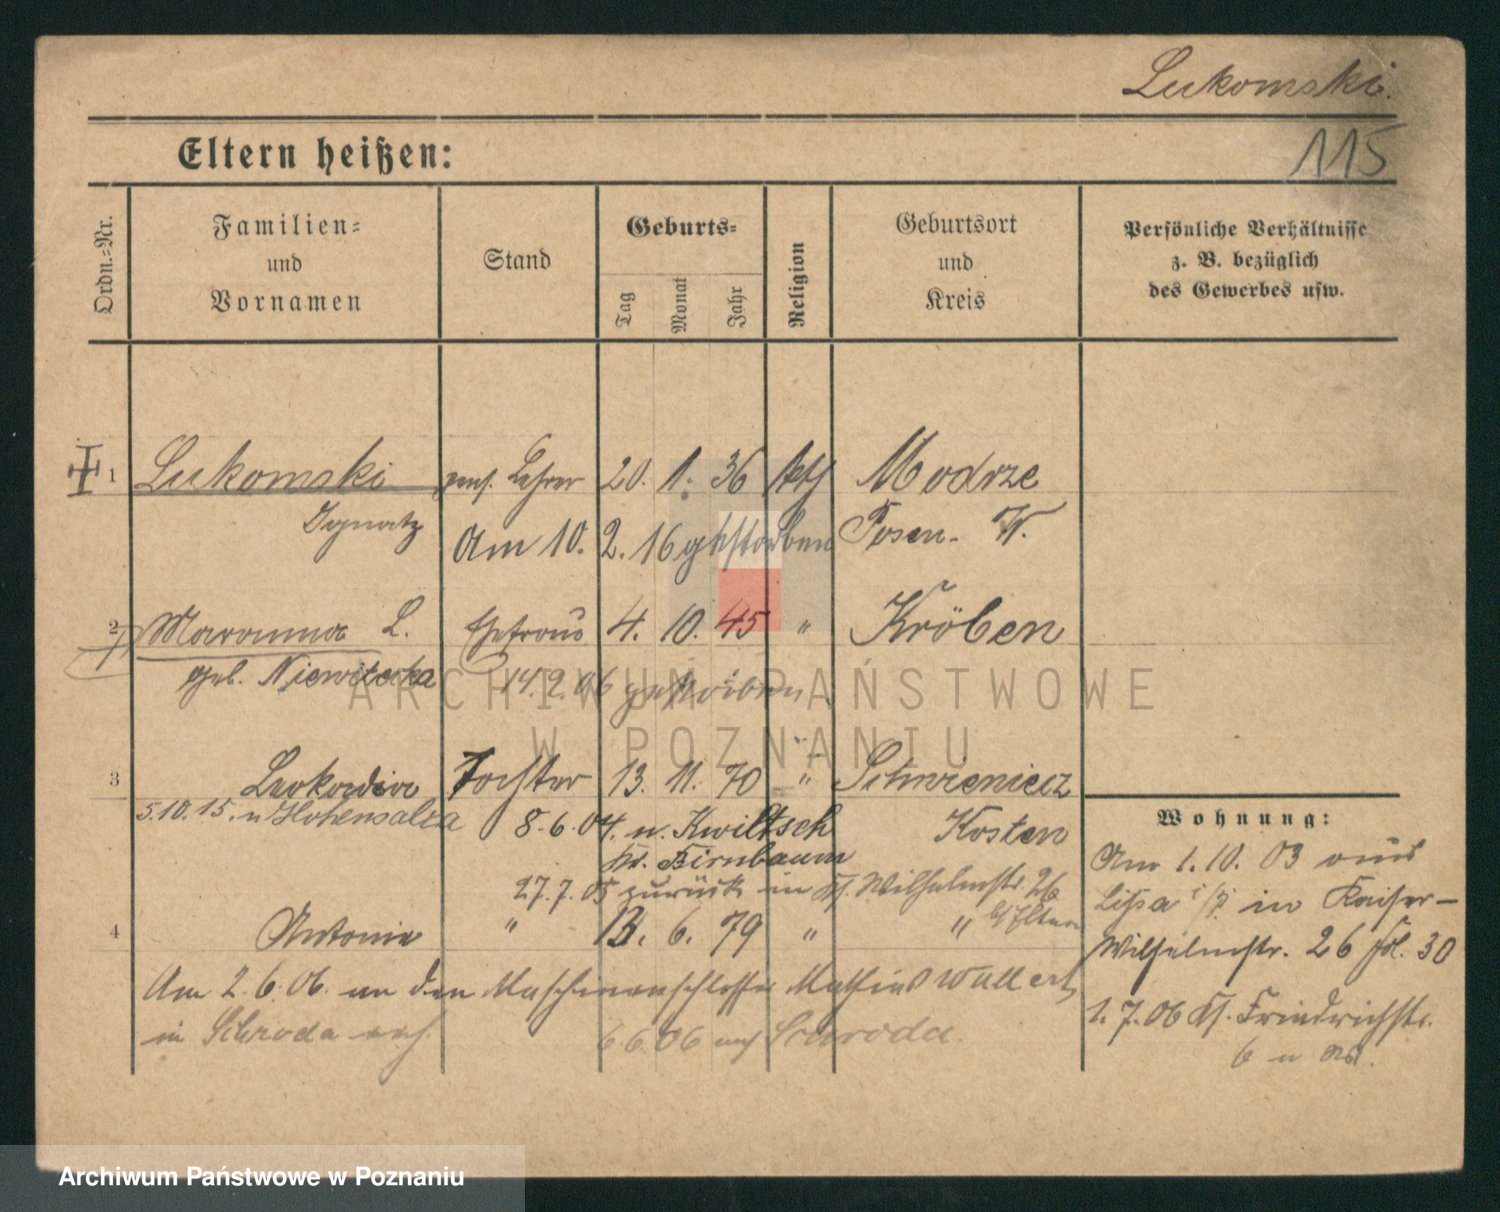 Lukomski.
115
Eltern heißen:
Ordn.=Nr.
Familien=
und
Vornamen
Stand
Geburts=
Tag
Monat
Jahr
Religion
Geburtsort
und
Kreis
Persönliche Verhältnisse
z. B. bezüglich
des Gewerbes usw.
1 Lukomski pens. Lehrer 20. 1. 36 kth Modrze
Ignatz Am 10. 2. 16 gestorben Posen. W.
2 Maranna L. Ehefrau 4. 10. 45 " Kröben
geb. 14.2.06 gestorben
3 Leokadia Tochter 13. 11. 70 "
5.10.15. n Hohensalza 8.6.04. n. Kwiltsch Kosten
Kr. Birnbaum
27.7.05 zurück in Wilhelmstr. 26
4 Antonie " 13. 6. 79 " " Eltern
Am 2.6.06. an den Maschinenschlosser
in Schroda verh. 6.6.06 nach Schroda.
Wohnung:
Am 1.10.03 aus
Lissa i/P in Kaiser-
Wilhelmstr. 26 30
1.7.06 Friedrichstr.
6
ARCHIWUM PAŃSTWOWE
W POZNANIU
Archiwum Państwowe w Poznaniu